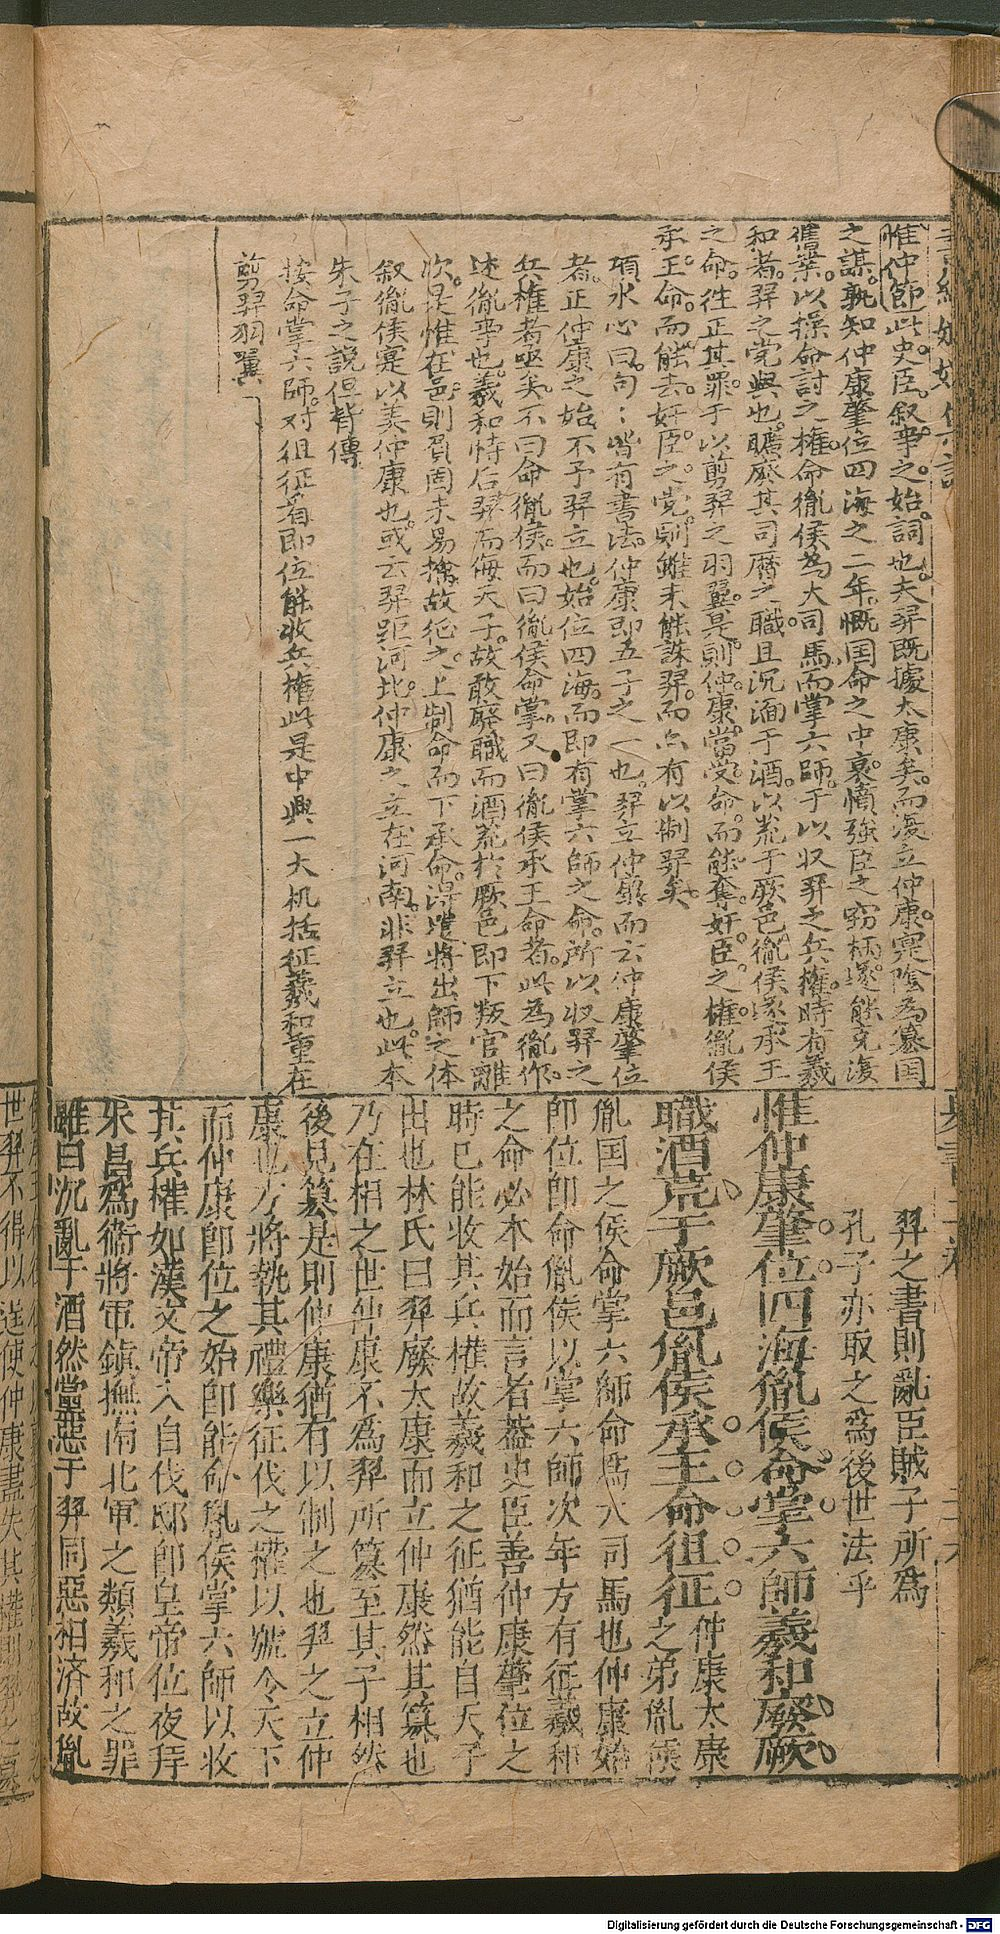 惟仲節此史臣叙事之始詞也夫羿既據太康矣而復立仲康寔陰為簒国
之謀孰知仲康肇位四海之二年慨国命之中衰憤強臣之窃柄遂能克復
舊業以操命討之權命胤侯為大司馬而掌六師于以収羿之兵權時有羲
和者羿之党與也曠廢其司曆之職且沉湎于酒以荒于厥邑胤侯遂承王
之命徃正其罪于以剪羿之羽翼是則仲康當受命而能奪奸臣之權胤侯
承王命而能去奸臣之党則雖未能誅羿而亦有以制羿矣
項水心曰句〻皆有書法仲康即五子之一也羿立仲康而云仲康肇位
者正仲康之始不予羿立也始位四海而即有掌六師之命所以収羿之
兵權者亟矣不曰命胤侯而曰胤侯命掌又曰胤侯承王命者此為胤作
述胤事也羲和恃后羿而侮天子故敢廢職而酒荒於厥邑即下叛官離
次是惟在邑則負固未易擒故征之上制命而下承命淂遣將出師之体
叙胤侯寔以美仲康也或云羿距河北仲康之立在河南非羿立也此本
朱子之說但背傳
按命掌六師対徂征看即位能收兵權此是中興一大机括征羲和重在
剪羿羽翼
羿之書則亂臣賊子所為
孔子亦取之爲後世法乎
惟仲康肇位四海胤侯命掌六師羲和廢厥
職酒荒于厥邑胤侯承王命徂征 仲康太康之弟胤侯
胤国之侯命掌六師命爲大司馬也仲康始
卽位卽命胤侯以掌六師次年方有征羲和
之命必本始而言者葢史臣善仲康肇位之
時已能收其兵權故羲和之征猶能自天子
出也林氏曰羿廢太康而立仲康然其簒也
乃在相之世仲康不爲羿所簒至其子相然
後見簒是則仲康猶有以制之也羿之立仲
康也方將執其禮樂征伐之權以號令天下
而仲康卽位之始卽能命胤侯掌六師以收
其兵權如漢文帝入自代邸卽皇帝位夜拜
宋昌爲衛將軍鎮撫南北軍之類羲和之罪
雖曰沉亂于酒然黨惡于羿同惡相済故胤
世羿不得以逞使仲康盡失其權則羿之簒